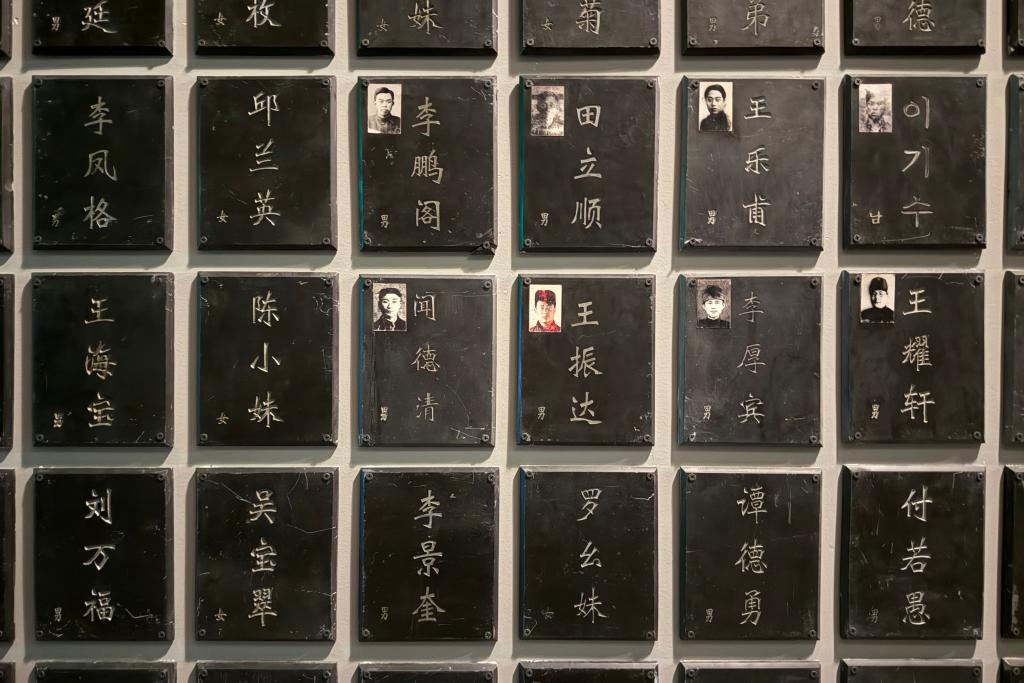 廷
女 枚
女 妹
女 菊
男 弟
男 德
李凤格 男
邱兰英 女
李鹏阁 男
田立顺 男
王乐甫 男
이기수 남
王海宝 男
陈小妹 女
闻德清 男
王振达 男
李厚宾 男
王耀轩 男
刘万福 男
吴宝翠 女
李景奎
罗幺妹 女
谭德勇 男
付若愚 男